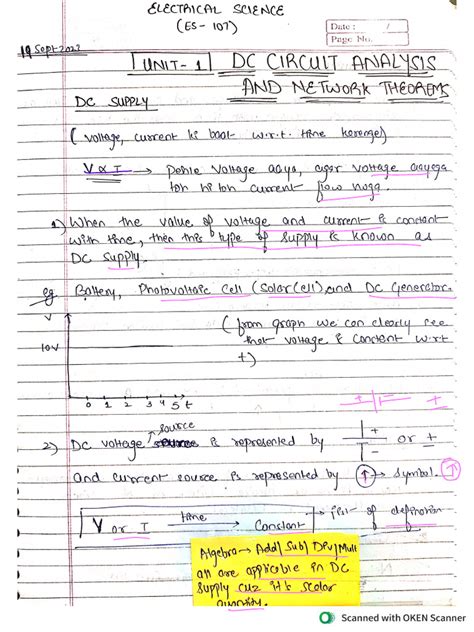 ELECTRICAL SCIENCE
(ES-107)
Date : /
Page No.
19 Sept 2023
UNIT-1 DC CIRCUIT ANALYSIS
AND NETWORK THEOREMS
DC SUPPLY
(voltage, current ki baat w.r.t. time karenge)
V ∝ I → Pehle Voltage aaya, agar voltage aayega
toh hi toh current flow hoga.
1) When the value of voltage and current is constant
with time, then this type of supply is known as
DC Supply.
eg Battery, Photovoltaic Cell (Solar Cell), and DC Generator.
V
(from graph we can clearly see
10V
that voltage is constant w.r.t
t)
0 1 2 3 4 5 t
source
2) DC voltage is represented by + - or +
and current source is represented by ↑ → symbol. ↑
V or I time → Constant → of definition
Algebra → Add/Sub/Div/Mull
all are applicable in DC
supply cuz it's scalar
quantity.
Scanned with OKEN Scanner